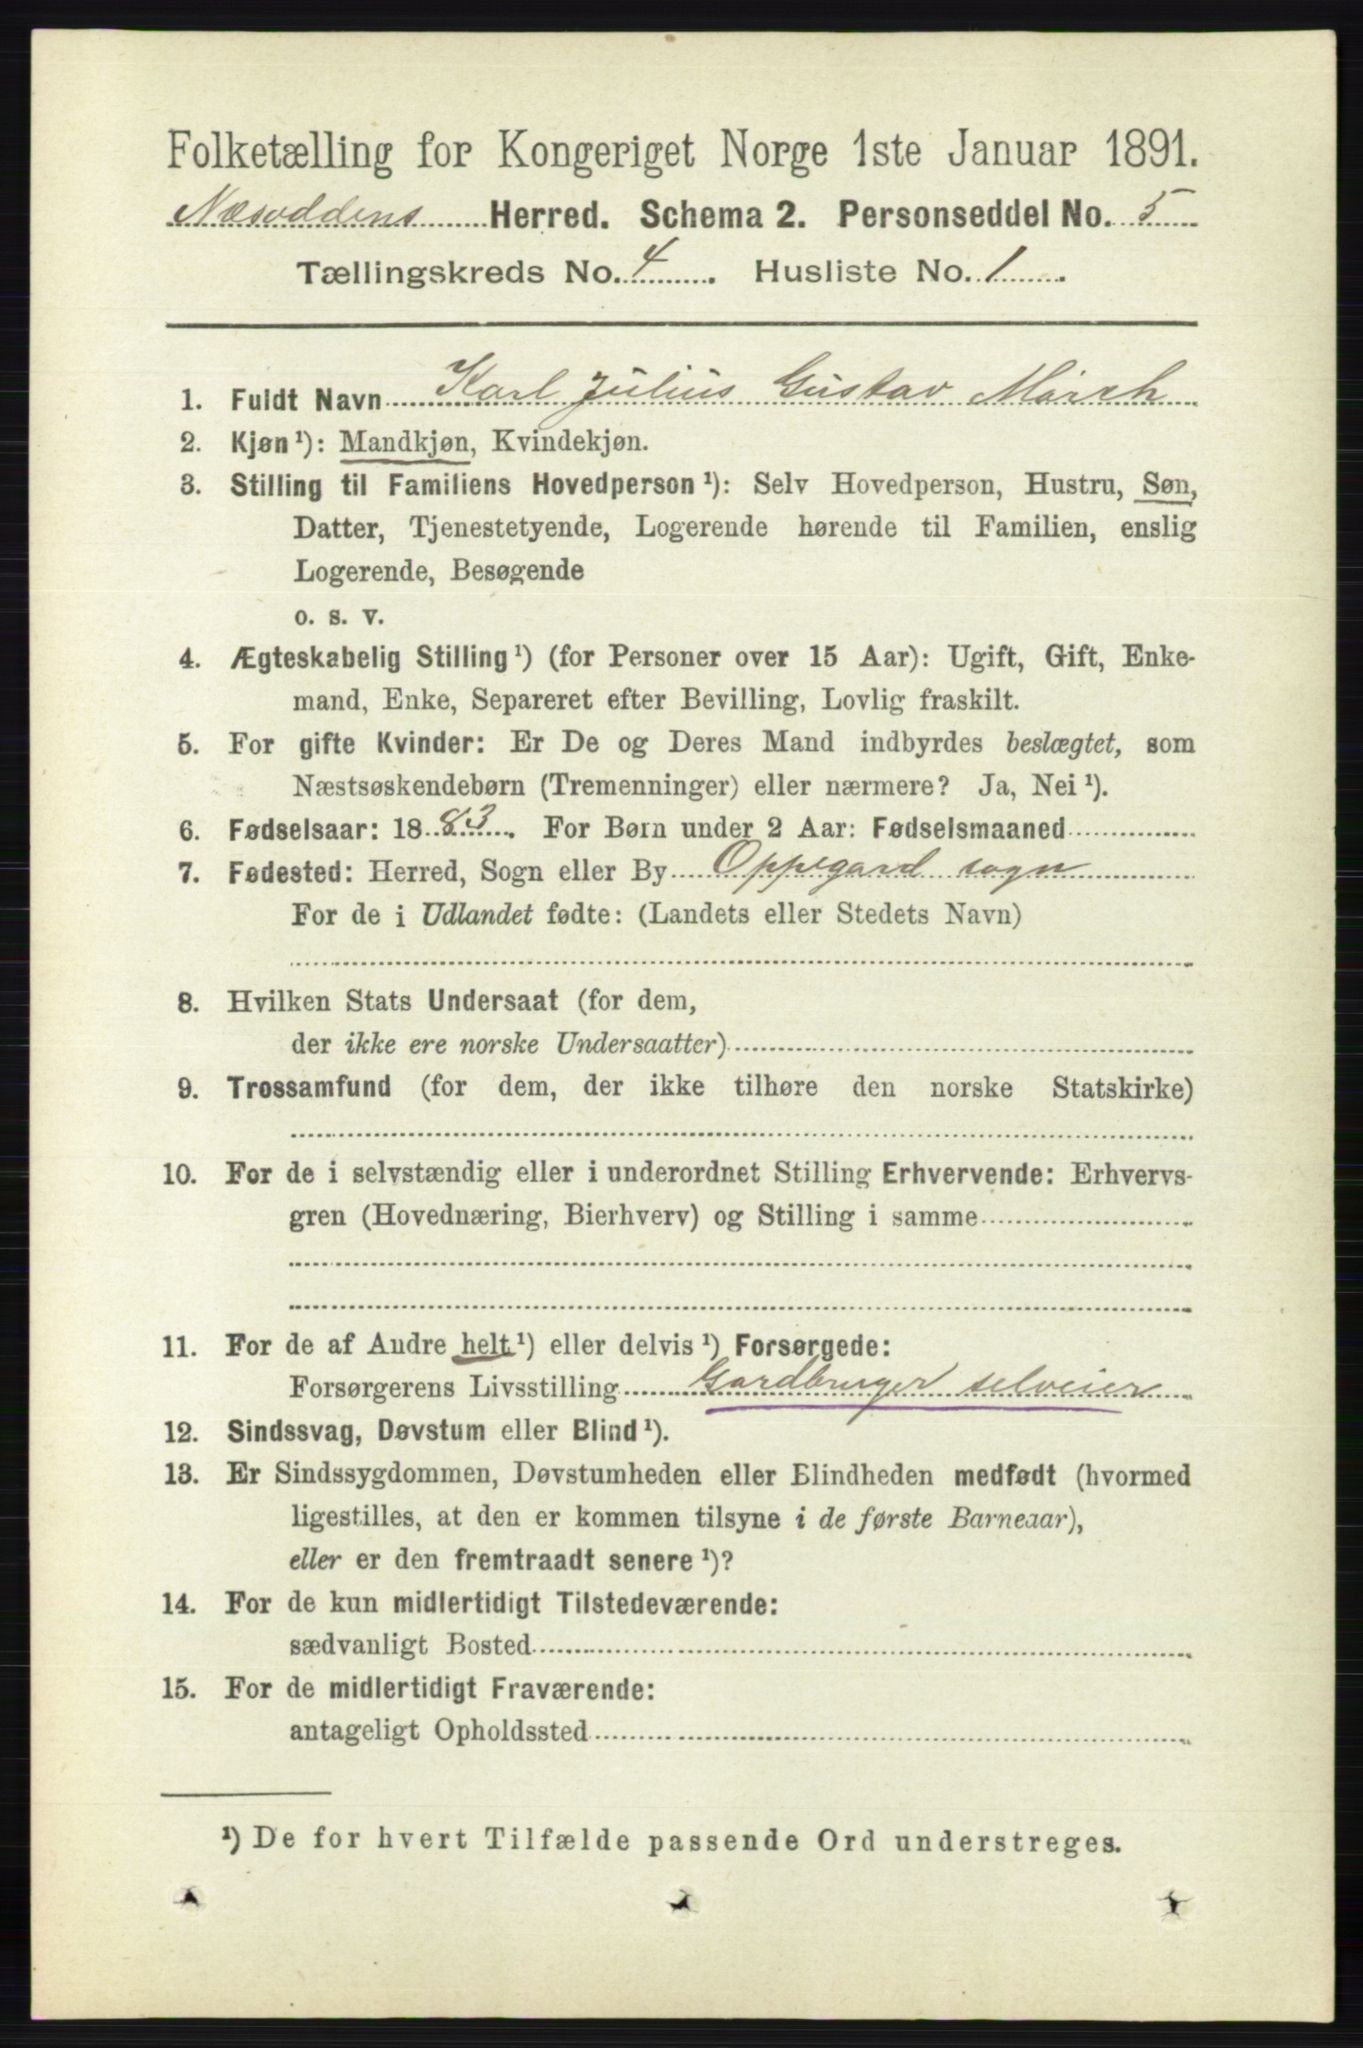 Folketælling for Kongeriget Norge 1ste Januar 1891.
Næsoddens Herred. Schema 2. Personseddel No. 5
Tællingskreds No. 4. Husliste No. 1.
1. Fuldt Navn Karl Julius Gustav March
2. Kjøn ¹): Mandkjøn, Kvindekjøn.
3. Stilling til Familiens Hovedperson ¹): Selv Hovedperson, Hustru, Søn,
Datter, Tjenestetyende, Logerende hørende til Familien, enslig
Logerende, Besøgende
o. s. v.
4. Ægteskabelig Stilling ¹) (for Personer over 15 Aar): Ugift, Gift, Enke-
mand, Enke, Separeret efter Bevilling, Lovlig fraskilt.
5. For gifte Kvinder: Er De og Deres Mand indbyrdes beslægtet, som
Næstsøskendebørn (Tremenninger) eller nærmere? Ja, Nei ¹).
6. Fødselsaar: 1883. For Børn under 2 Aar: Fødselsmaaned
7. Fødested: Herred, Sogn eller By Oppegard sogn
For de i Udlandet fødte: (Landets eller Stedets Navn)
8. Hvilken Stats Undersaat (for dem,
der ikke ere norske Undersaatter)
9. Trossamfund (for dem, der ikke tilhøre den norske Statskirke)
10. For de i selvstændig eller i underordnet Stilling Erhvervende: Erhvervs-
gren (Hovednæring, Bierhverv) og Stilling i samme
11. For de af Andre helt ¹) eller delvis ¹) Forsørgede:
Forsørgerens Livsstilling Gardbruger selveier
12. Sindssvag, Døvstum eller Blind ¹).
13. Er Sindssygdommen, Døvstumheden eller Blindheden medfødt (hvormed
ligestilles, at den er kommen tilsyne i de første Barneaar),
eller er den fremtraadt senere ¹)?
14. For de kun midlertidigt Tilstedeværende:
sædvanligt Bosted
15. For de midlertidigt Fraværende:
antageligt Opholdssted
¹) De for hvert Tilfælde passende Ord understreges.